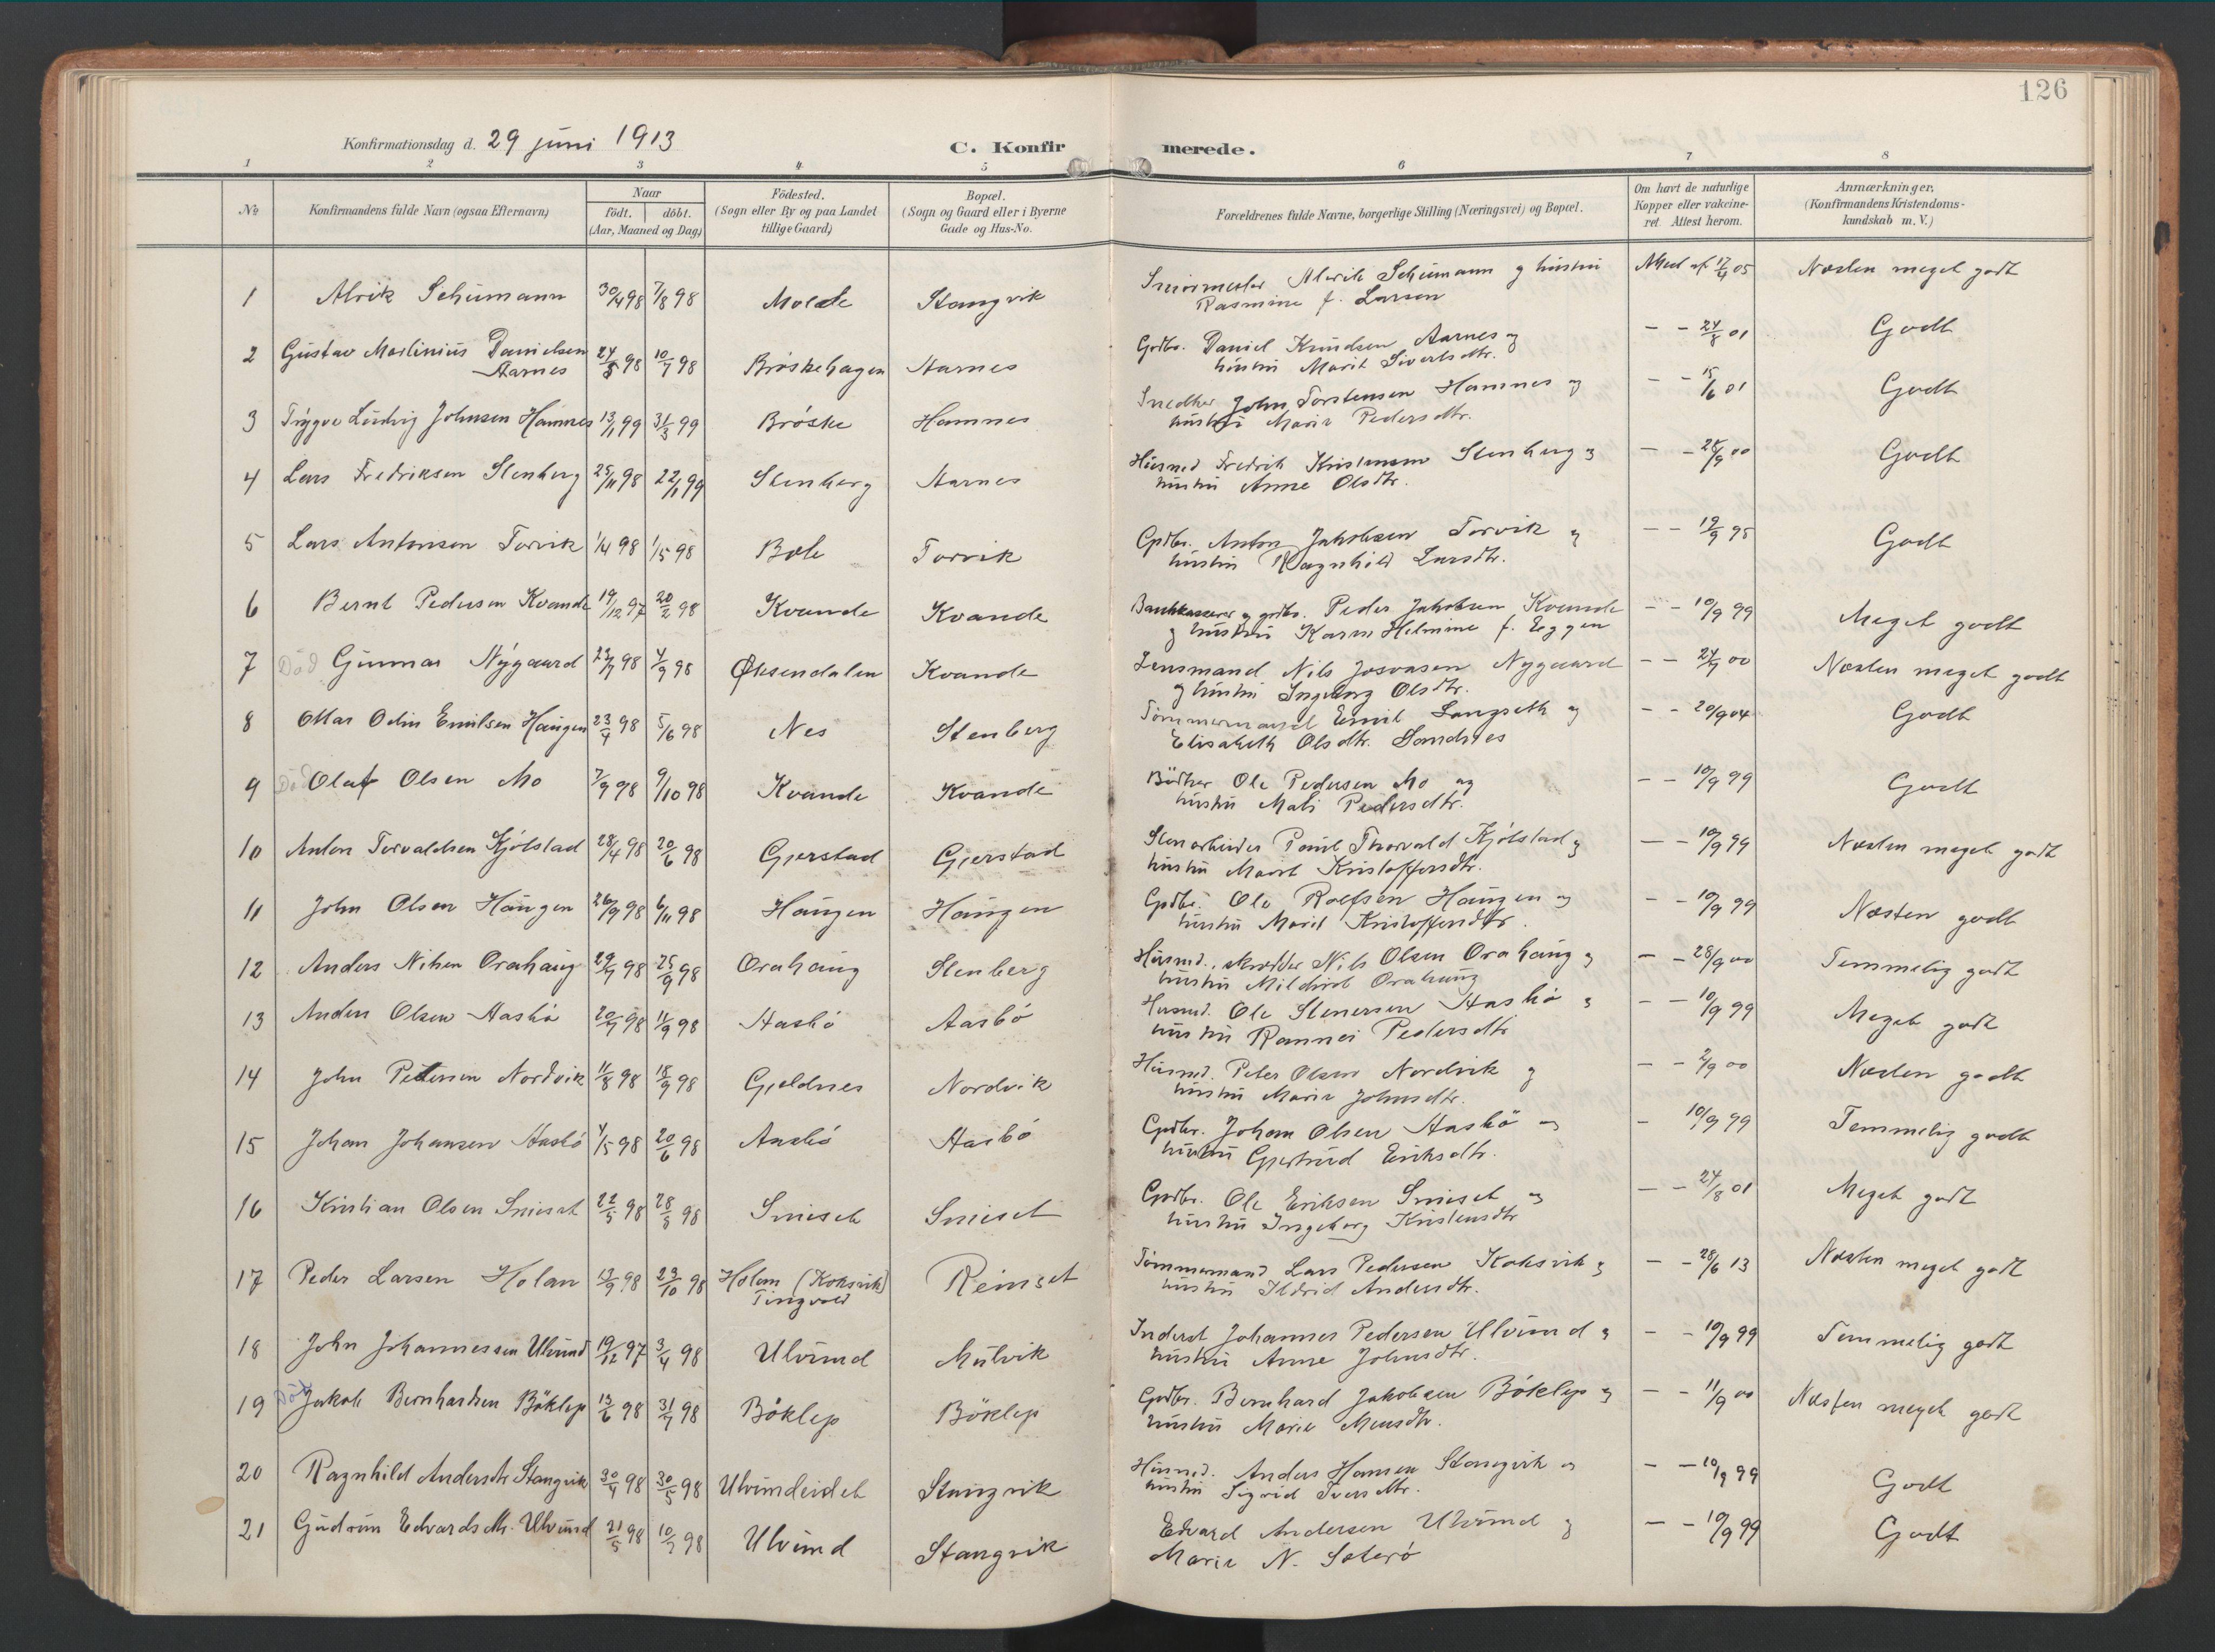 126
Konfirmationsdag d. 29 juni 1913
C. Konfirmerede.
1 2 3 4 5 6 7 8
No
Konfirmandens fulde Navn (ogsaa Efternavn)
Naar
födt. döbt.
(Aar, Maaned og Dag)
Födested.
(Sogn eller By og paa Landet
tillige Gaard)
Bopæl.
(Sogn og Gaard eller i Byerne
Gade og Hus-No.
Forældrenes fulde Navne, borgerlige Stilling (Næringsvei) og Bopæl.
Om havt de naturlige
Kopper eller vakcine-
ret. Attest herom.
Anmærkninger.
(Konfirmandens Kristendoms-
kundskab m. V.)
1 Alvik Schumann 30/4 98 7/8 98 Molde Stangvik Schumann og hustru 05 Næsten meget godt
Rasmine f. Larsen
2 Gustav Marlinius Danielsen 98 10/7 98 Bröskehagen Aarnes Grdbr. Daniel Knudsen Aarnes og - - 24/8 01 Godt
Aarnes hustru Marit Sivertsdtr.
3 Trygve Ludvig Johnsen Hamnes 13/1 99 31/3 99 Bröske Hamnes Snedker John Torstensen Hamnes og - - 15/6 01 Godt
hustru Marie Pedersdtr.
4 Lars Fredriksen Stenberg 25/11 98 22/1 99 Stenberg Aarnes Husmd Fredrik Kristensen Stenberg og - - 00 Godt
hustru Anne Olsdtr.
5 Lars Antonsen Torvik 1/4 98 1/5 98 Bole Torvik Grdbr. Anton Jakobsen Torvik og - - Godt
hustru Ragnhild Larsdtr.
6 Bernt Pedersen Kvande 19/12 97 20/2 98 Kvande Kvande Bankkasserer og grdbr. Peder Jakobsen Kvande - - 10/9 99 Meget godt
og hustru Karen Helmine f. Eggen
7 Död Gunnar Nygaard 98 4/9 98 Øksendalen Kvande Lensmand Nils Josvasen Nygaard - - 00 Næsten meget godt
og hustru Ingeborg Olsdtr.
8 Ottar Odin Emilsen Haugen 23/4 98 5/6 98 Nes Stenberg Tömmermand Emil Langseth og - - 20/9 04 Godt
Elisabeth Olsdtr. Sandnes
9 Död Olaf Olsen Mo 7/9 98 9/10 98 Kvande Kvande Bödker Ole Pedersen Mo og - - 10/9 99 Godt
hustru Mali Pedersdtr.
10 Anton Torvaldsen Kjölstad 28/4 98 20/6 98 Gjerstad Gjerstad Stenarbeider Paul Thorvald Kjölstad og - - 10/9 99 Næsten meget godt
hustru Marit Kristoffersdtr.
11 John Olsen Haugen 26/9 98 6/11 98 Haugen Haugen Grdbr. Ole Rolfsen Haugen og - - 10/9 99 Næsten godt
hustru Marit Kristoffersdtr.
12 Anders Nilsen Orahaug 98 25/9 98 Orahaug Stenberg Husmd., skrædder Nils Olsen Orahaug og - - 28/9 00 Temmelig godt
hustru Mildrid Orahaug
13 Anders Olsen Aasbö 20/7 98 11/9 98 Aasbö Aasbö Husmd. Ole Stenersen Aasbö og - - 10/9 99 Meget godt
hustru Rannei Pedersdtr
14 John Petersen Nordvik 11/8 98 18/9 98 Gjeldnes Nordvik Husmd. Peter Olsen Nordvik og - - 2/9 00 Næsten godt
hustru Marie Johnsdtr.
15 Johan Johansen Aasbö 4/5 98 20/6 98 Aasbö Aasbö Grdbr. Johan Olsen Aasbö og - 10/9 99 Temmelig godt
hustru Gjertrud Eriksdtr.
16 Kristian Olsen Sniset 22/5 98 98 Sniset Sniset Grdbr. Ole Eriksen Sniset og - - 24/8 01 Meget godt
hustru Ingeborg Kristensdtr
17 Peder Larsen Holan 13/9 98 23/10 98 Holan (Koksvik) Reinset Tömmermand Lars Pedersen Koksvik og - - 28/6 13 Næsten meget godt
Tingvold hustru Ildrid Andersdtr.
18 John Johannessen Ulvund 19/12 97 3/4 98 Ulvund Mulvik Inderst Johannes Pedersen Ulvund og - - 10/9 99 Temmelig godt
hustru Anne Johnsdtr.
19 Död Jakob Bernhardsen Böklep 13/6 98 31/7 98 Böklep Böklep Grdbr. Bernhard Jakobsen Böklep og - - 11/9 00 Næsten meget godt
hustru Marie Monsdtr.
20 Ragnhild Andersdtr Stangvik 30/4 98 30/5 98 Ulvundeidet Stangvik Husmd. Anders Hansen Stangvik og - - 10/9 99 Godt
hustru Sigrid Iversdtr.
21 Gudrun Edvardsdtr. Ulvund 21/5 98 10/7 98 Ulvund Stangvik Edvard Andersen Ulvund og - - 10/9 99 Godt
Marie N. Seterö